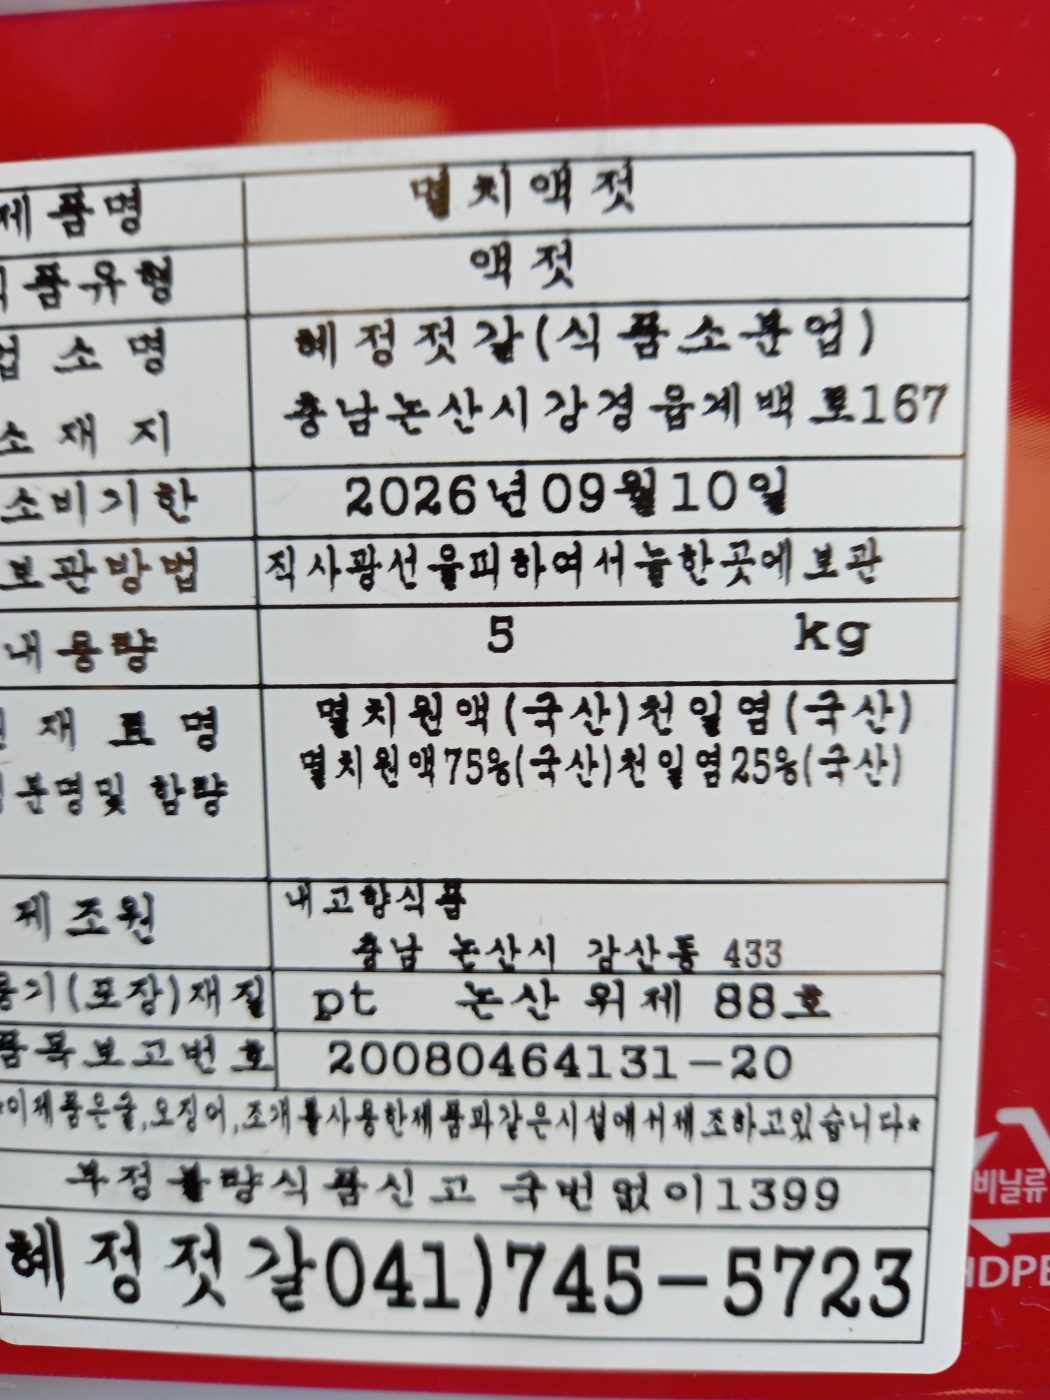 제품명 멸치액젓
식품유형 액젓
업소명 혜정젓갈(식품소분업)
소재지 충남논산시강경읍계백로167
소비기한 2026년09월10일
보관방법 직사광선을피하여서늘한곳에보관
내용량 5 kg
원재료명 멸치원액(국산)천일염(국산)
성분명및 함량 멸치원액75%(국산)천일염25%(국산)
제조원 내고향식품
충남 논산시 강산동 433
용기(포장)재질 pt 논산 위제 88호
품목보고번호 20080464131-20
*이제품은굴,오징어,조개를사용한제품과같은시설에서제조하고있습니다*
부정불량식품신고 국번없이1399
혜정젓갈041)745-5723
비닐류
HDPE